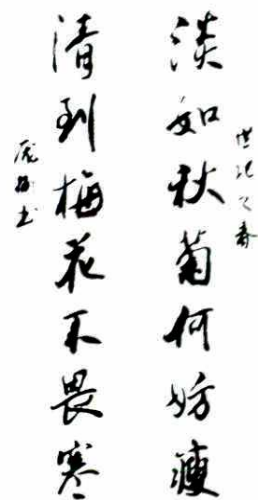 淡如秋菊何妨瘦
世纪之春
清到梅花不畏寒